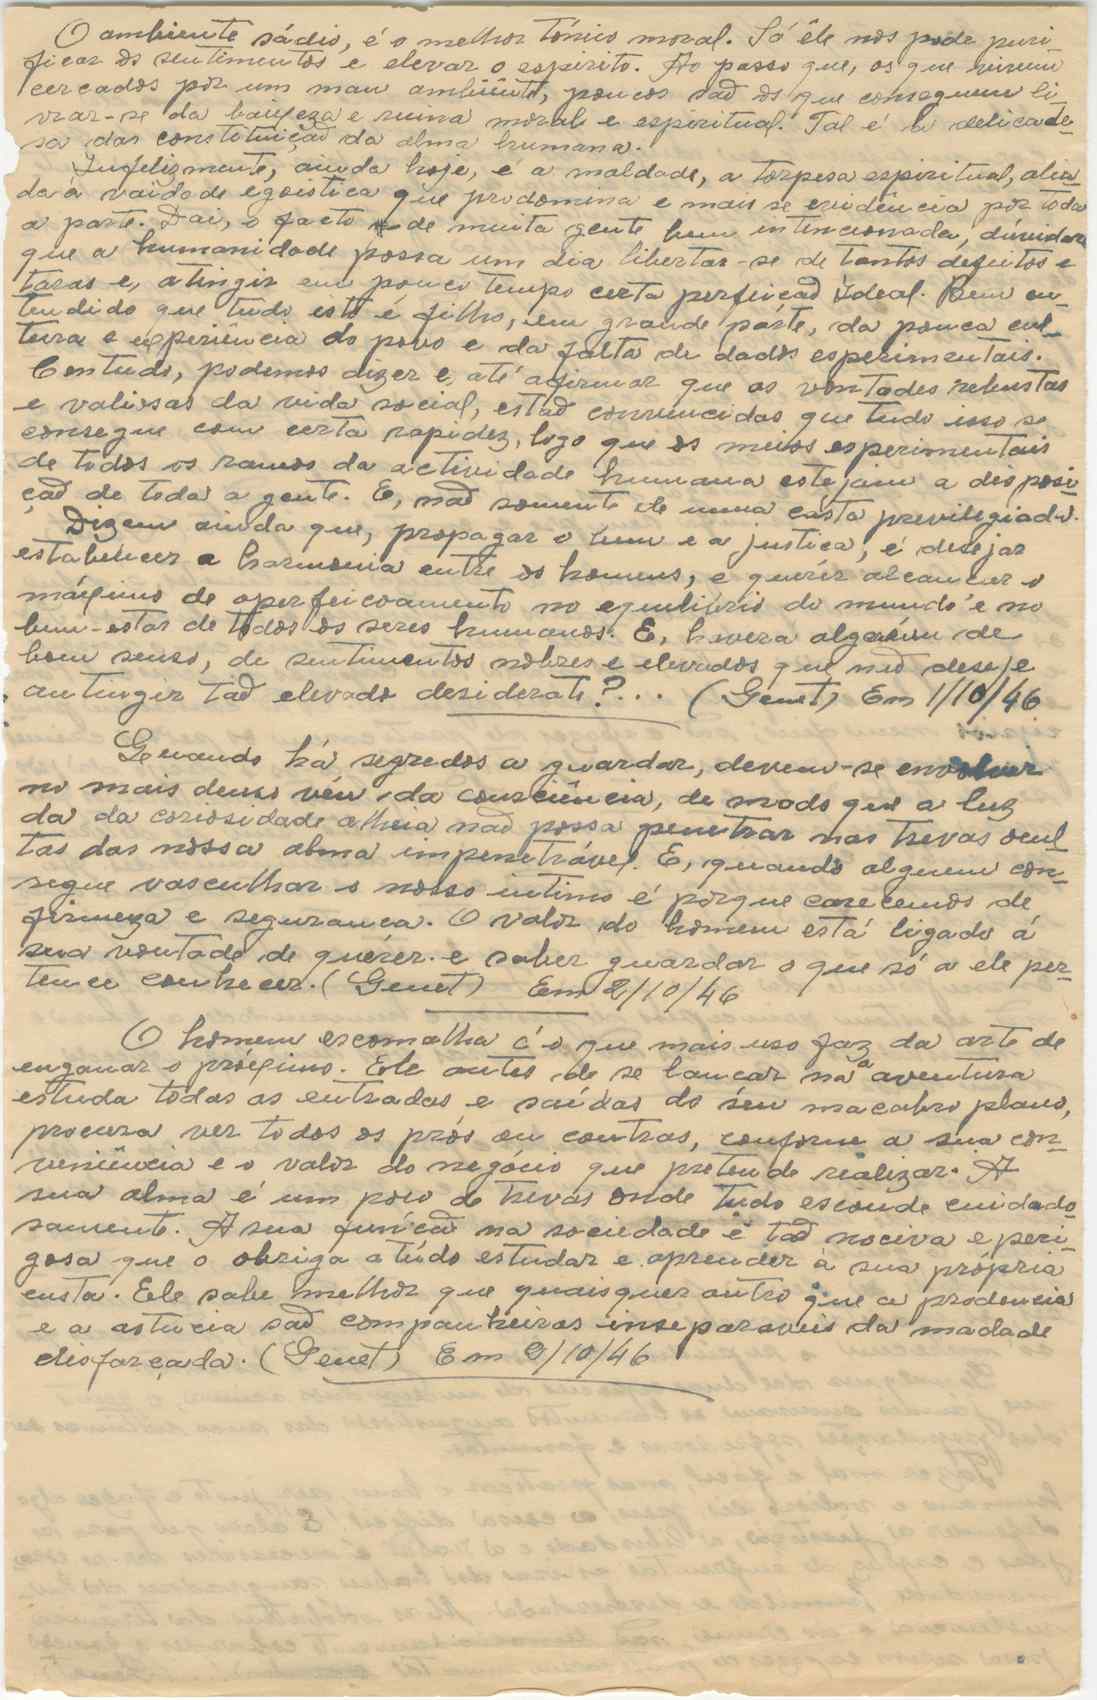 O ambiente sádio, é o melhor tónico moral. Só êle nos pode puri-
ficar os sentimentos e elevar o espirito. Ao passo que, os que vivem
cercados por um mau ambiente, poucos são os que conseguem li-
vrar-se da baixeza e ruina moral e espiritual. Tal é a delicade-
sa das constituição da alma humana.
Infelizmente, ainda hoje, é a maldade, a torpesa espiritual, alia-
da á vaidade egoistica que predomina e mais se evidência por toda
a parte. Dai, o facto de muita gente bem intencionada, dúvidar
que a humanidade possa um dia libertar-se de tantos defeitos e
taras e, atingir em pouco tempo certa perfeição ideal. Bem en-
tendido que tudo isto é filho, em grande parte, da pouca cul-
tura e expêriência do povo e da falta de dados esperimentais.
Contudo, podemos dizer e, até afirmar que as vontades rebustas
e valiosas da vida social, estão convencidas que tudo isso se
consegue com certa rapidez, logo que os meios esperimentais
de todos os ramos da actividade humana estejam a disposi-
ção de toda a gente. E, não somente de uma casta previlegiada.
Dizem ainda que, propagar o bem e a justica, é desejar
estabelecer a harmonia entre os homens, e querêr alcancar o
máximo de aperfeicoamento no equilibrio do mundo e no
bem-estar de todos os seres humanos. E, havera alguém de
bom senso, de sentimentos nobres e elevados que não deseje
antingir tão elevado desiderato?... (Genet) Em 1/10/46
Quando há segredos a guardar, devem-se envolver
no mais denso véu da consciência, de modo que a luz
da da coriosidade alheia não possa penetrar nas trevas ocul
tas das nossa alma impenetrável. E, quando alguem con-
segue vasculhar o nosso intimo é porque carecemos de
firmeza e seguranca. O valor do homem está ligado á
sua vontade de querêr e saber guardar o que só a ele per-
tence conhecer. (Genet) Em 2/10/46
O homem escomalha é o que mais uso faz da arte de
enganar o próximo. Ele antes de se lancar na a aventura
estuda todas as entradas e saídas do seu macabro plano,
procura ver todos os prós ou contras, conforme a sua con-
veniência e o valor do negócio que pretende realizar. A
sua alma é um poco de trevas onde tudo esconde cuidado-
samente. A sua função na sociedade é tão nociva e peri-
gosa que o obriga a túdo estudar e aprender à sua própria
custa. Ele sabe melhor que quaisquer outro que a prodencia
e a astucia são companheiras inseparaveis da madade
disfarçada. (Genet) Em 2/10/46